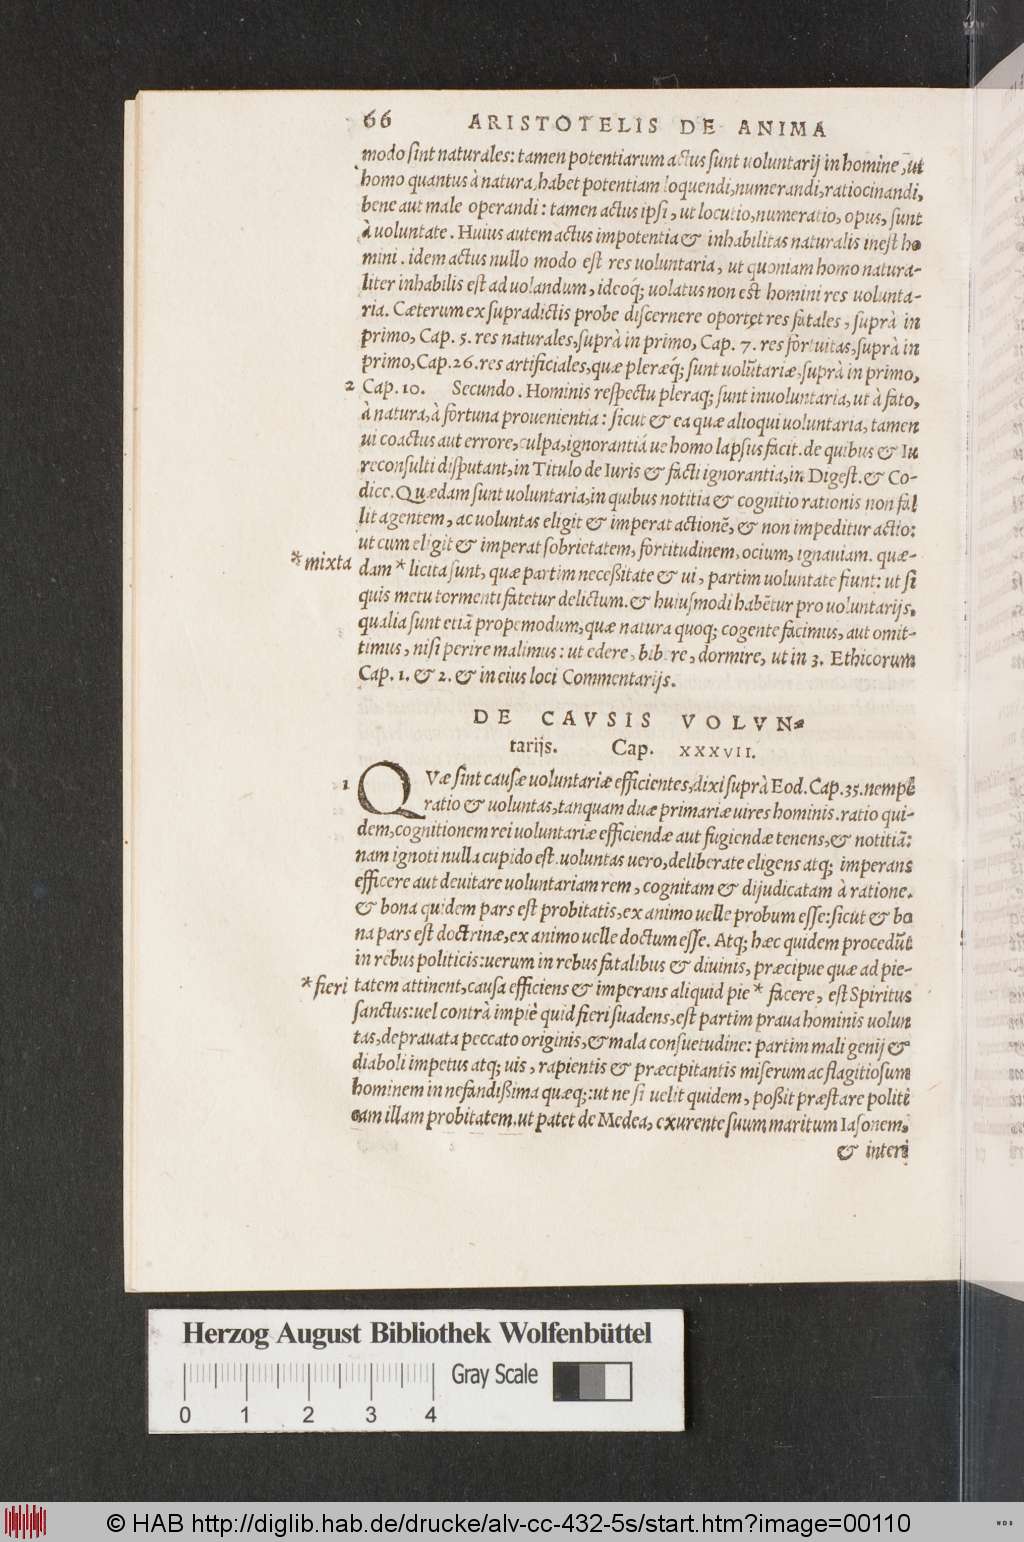 66 ARISTOTELIS DE ANIMA
modo sint naturales: tamen potentiarum actus sunt uoluntarij in homine, ut
homo quantus à natura, habet potentiam loquendi, numerandi, ratiocinandi,
bene aut male operandi: tamen actus ipsi, ut locutio, numeratio, opus, sunt
à uoluntate. Huius autem actus impotentia & inhabilitas naturalis inest ho
mini. idem actus nullo modo est res uoluntaria, ut quoniam homo natura-
liter inhabilis est ad uolandum, ideoq́; uolatus non est homini res uolunta-
ria. Cæterum ex supradictis probe discernere oportet res fatales, suprà in
primo, Cap. 5. res naturales, suprà in primo, Cap. 7. res fortuitas, suprà in
primo, Cap. 26. res artificiales, quæ pleræq́; sunt uolũtariæ, suprà in primo,
2 Cap. 10. Secundo. Hominis respectu pleraq; sunt inuoluntaria, ut à fato,
à natura, à fortuna prouenientia: sicut & ea quæ alioqui uoluntaria, tamen
ui coactus aut errore, culpa, ignorantiá ue homo lapsus facit. de quibus & Iu
reconsulti disputant, in Titulo de Iuris & facti ignorantia, in Digest. & Co-
dice. Quædam sunt uoluntaria, in quibus notitia & cognitio rationis non fal
lit agentem, ac uoluntas eligit & imperat actionẽ, & non impeditur actio:
ut cum eligit & imperat sobrietatem, fortitudinem, ocium, ignauiam. quæ-
*mixta dam * licita sunt, quæ partim necessitate & ui, partim uoluntate fiunt: ut si
quis metu tormenti fatetur delictum. & huiusmodi habẽtur pro uoluntarijs.
qualia sunt etiã propemodum, quæ natura quoq; cogente facimus, aut omit-
timus, nisi perire malimus: ut edere, bibere, dormire, ut in 3. Ethicorum
Cap. 1. & 2. & in eius loci Commentarijs.
DE CAVSIS VOLVN-
tarijs. Cap. XXXVII.
1 QVæ sint causæ uoluntariæ efficientes, dixi suprà Eod. Cap. 35. nempe
ratio & uoluntas, tanquam duæ primariæ uires hominis. ratio qui-
dem, cognitionem rei uoluntariæ efficiendæ aut fugiendæ tenens, & notitiã:
nam ignoti nulla cupido est. uoluntas uero, deliberate eligens atq; imperans
efficere aut deuitare uoluntariam rem, cognitam & dijudicatam à ratione.
& bona quidem pars est probitatis, ex animo uelle probum esse: sicut & bo
na pars est doctrinæ, ex animo uelle doctum esse. Atq; hæc quidem procedũt
in rebus politicis: uerum in rebus fatalibus & diuinis, præcipue quæ ad pie-
*fieri tatem attinent, causa efficiens & imperans aliquid pie * facere, est Spiritus
sanctus: uel contrà impiè quid fieri suadens, est partim praua hominis uolun
tas, deprauata peccato originis, & mala consuetudine: partim mali genij &
diaboli impetus atq; uis, rapientis & præcipitantis miserum ac flagitiosum
hominem in nefandissima quæq;: ut ne si uelit quidem, possit præstare politi
cam illam probitatem. ut patet de Medea, exurente suum maritum Iasonem,
& interi
Herzog August Bibliothek Wolfenbüttel
Gray Scale
0 1 2 3 4
© HAB http://diglib.hab.de/drucke/alv-cc-432-5s/start.htm?image=00110